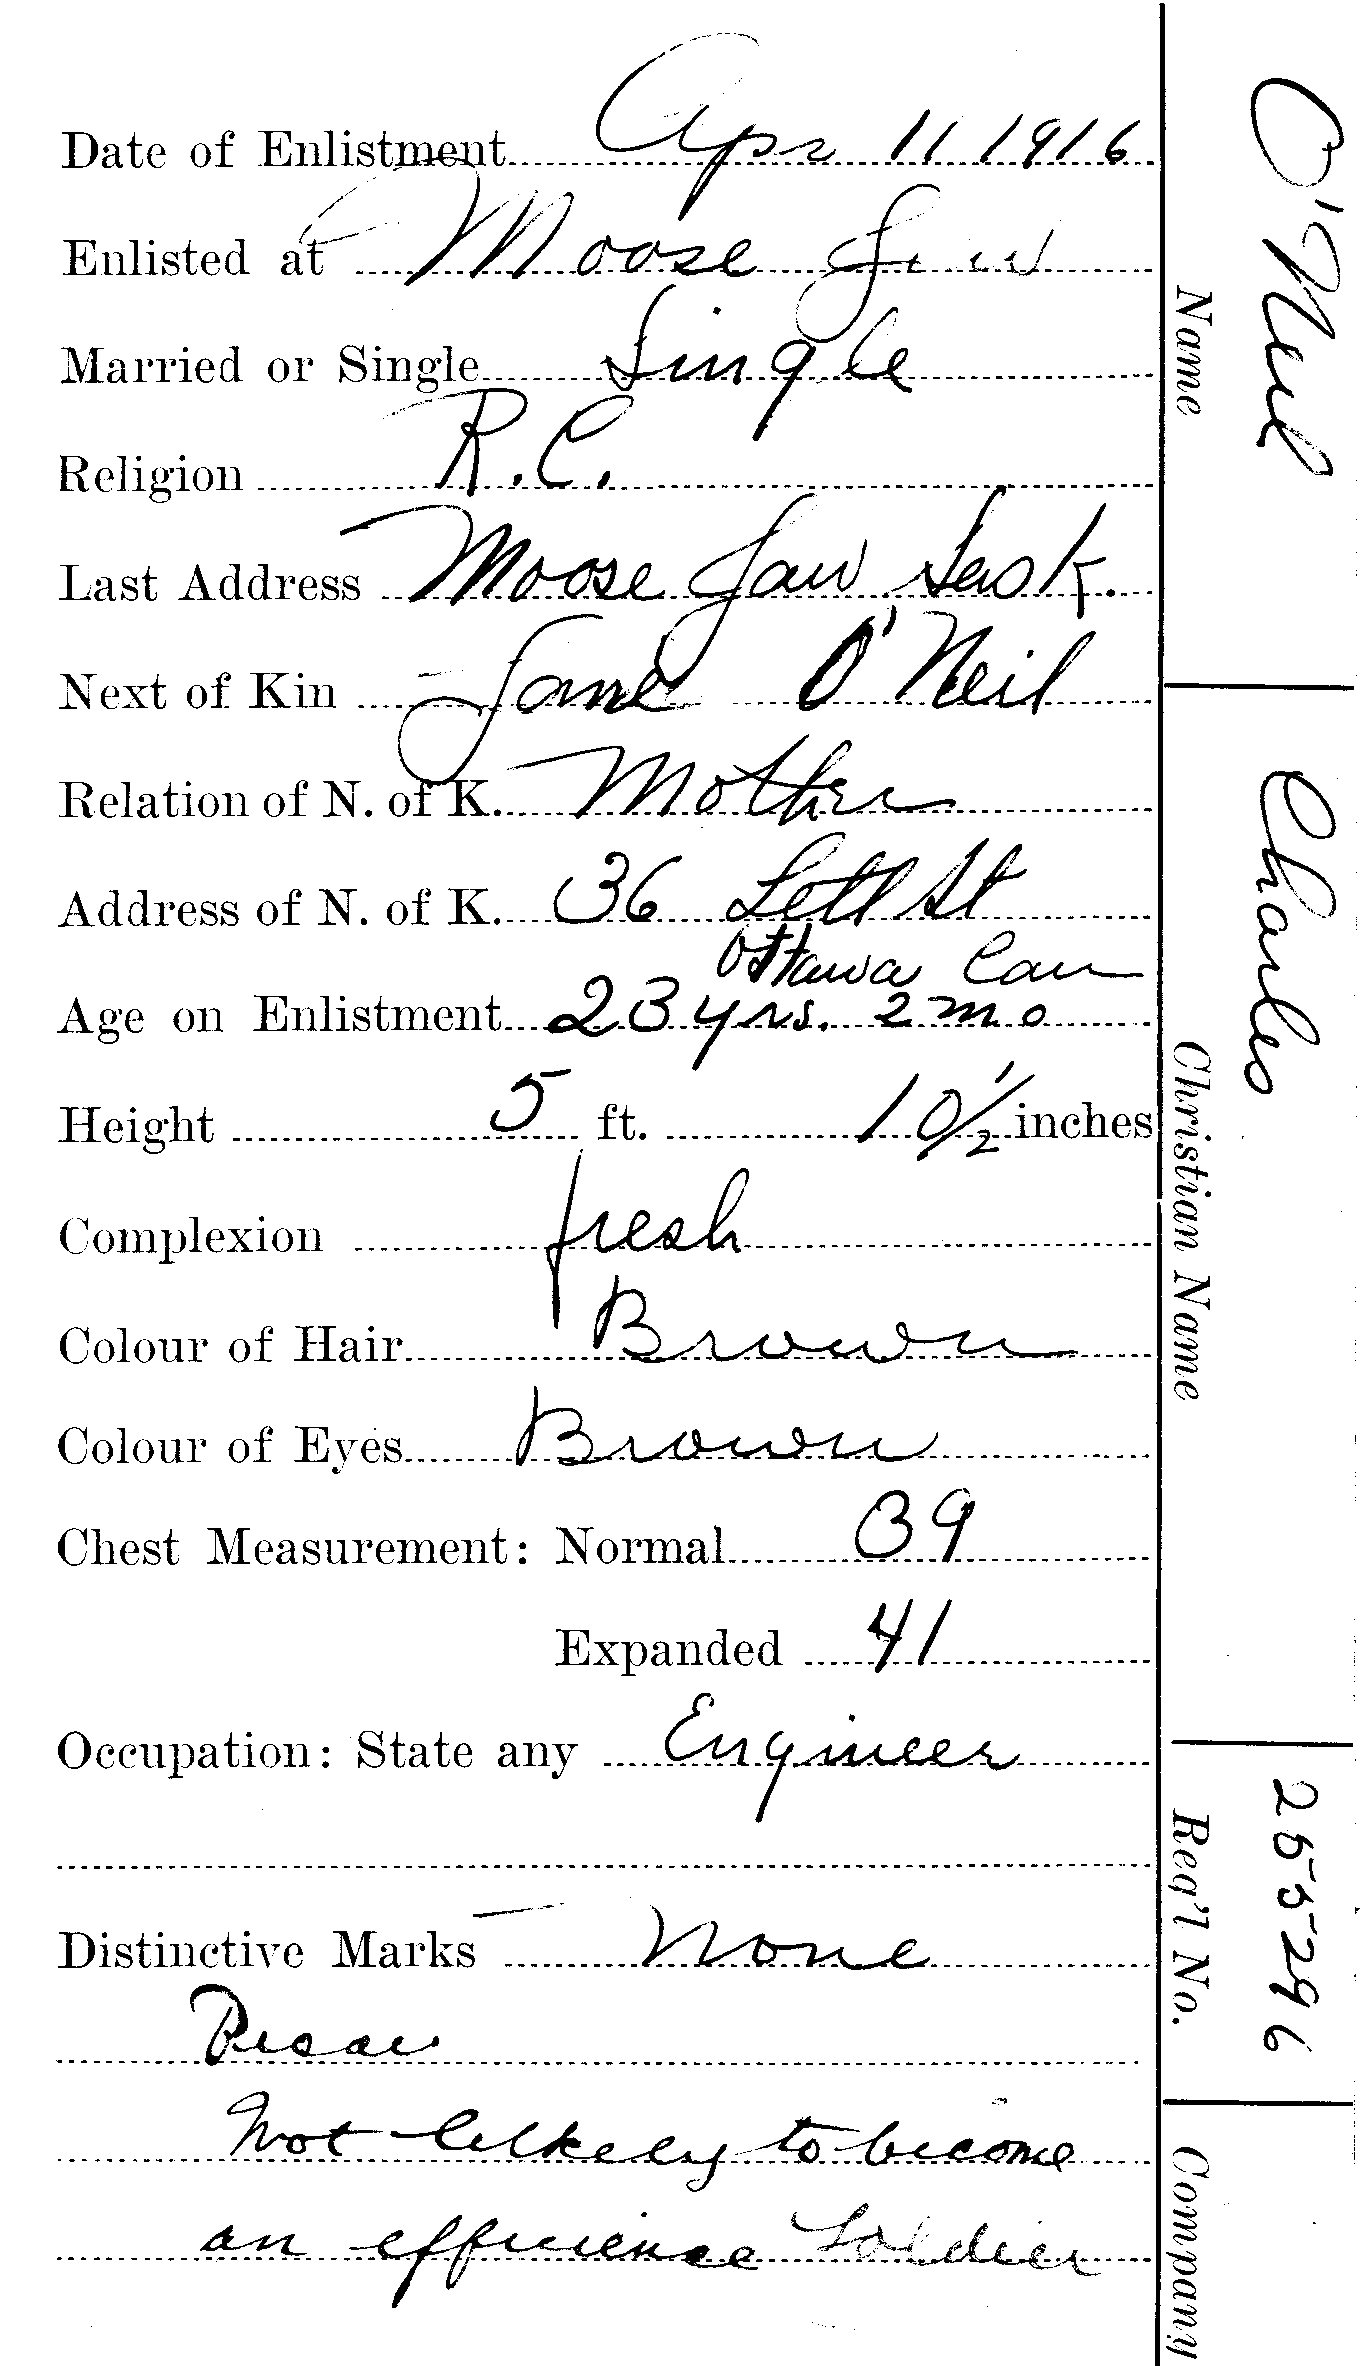 Date of Enlistment Apr 11 1916
Enlisted at Moose Jaw
Married or Single Single
Religion R.C.
Last Address Moose Jaw Sask.
Next of Kin Jane O'Neil
Relation of N. of K. Mother
Address of N. of K. 36 Lett St
Ottawa Can
Age on Enlistment 23 yrs. 2 mo
Height 5 ft. 10 1/2 inches
Complexion fresh
Colour of Hair Brown
Colour of Eyes Brown
Chest Measurement: Normal 39
Expanded 41
Occupation: State any Engineer
Distinctive Marks None
Not likely to become
an soldier
O'Neil
Name
Charles
Christian Name
255296
Reg'l No.
Company